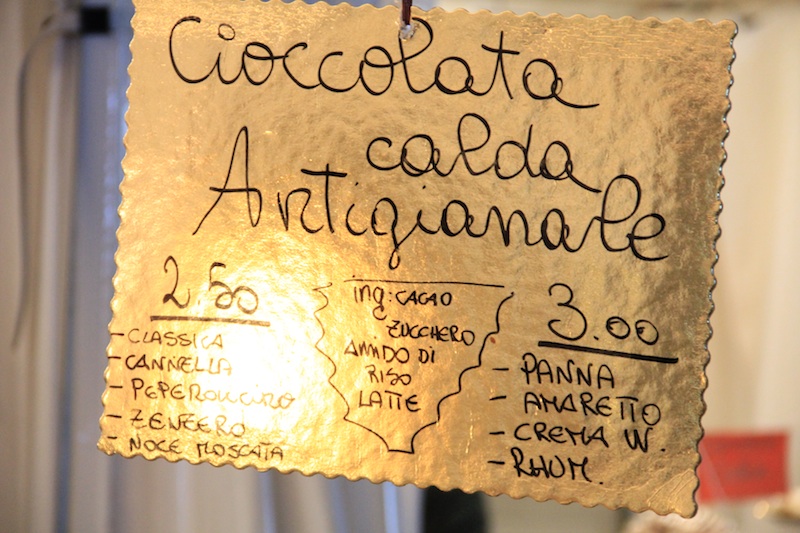 Cioccolata
calda
Artigianale
2.50
- CLASSICA
- CANNELLA
- PEPERONCINO
- ZENZERO
- NOCE MOSCATA
ing: CACAO
ZUCCHERO
AMIDO DI
RISO
LATTE
3.00
- PANNA
- AMARETTO
- CREMA W.
- RHUM.